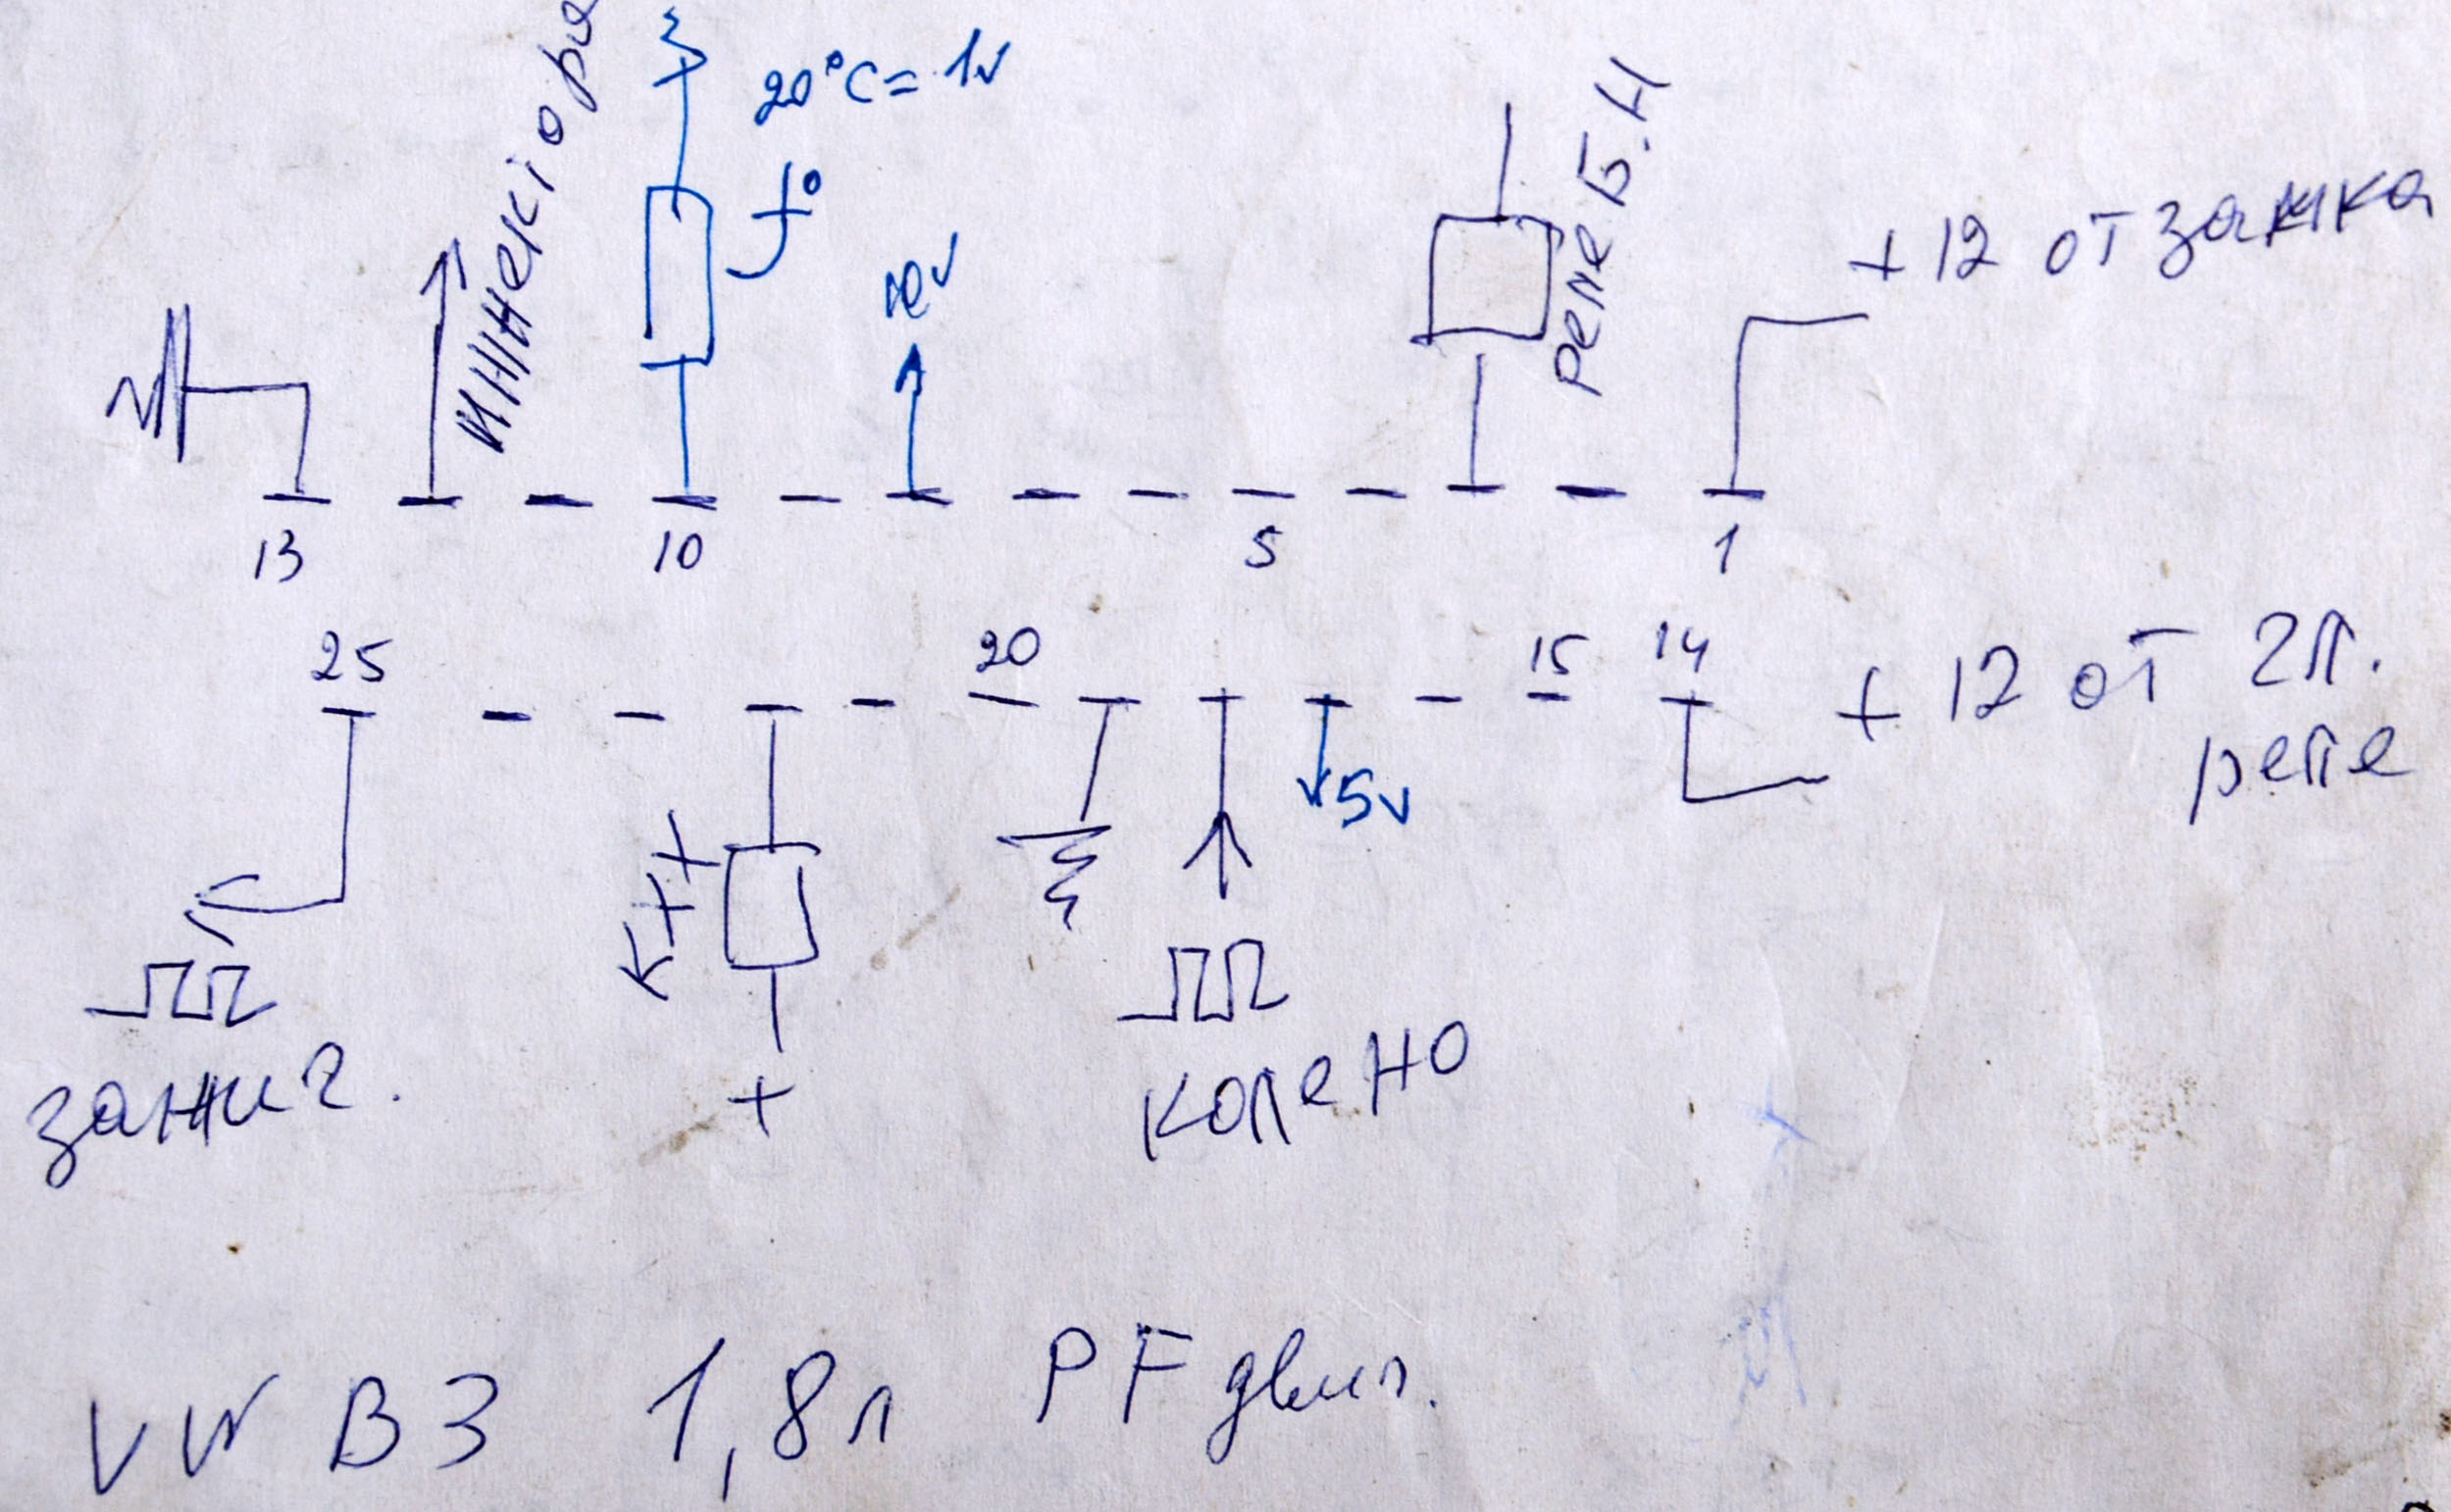 20°C = 1v
t°
инжектора
Реле Б.Н
+ 12 от замка
13
10
5
1
25
20
15
14
+ 12 от гл.
реле
5v
КХХ
+
зажиг.
колено
VW B3 1,8л PF двиг.